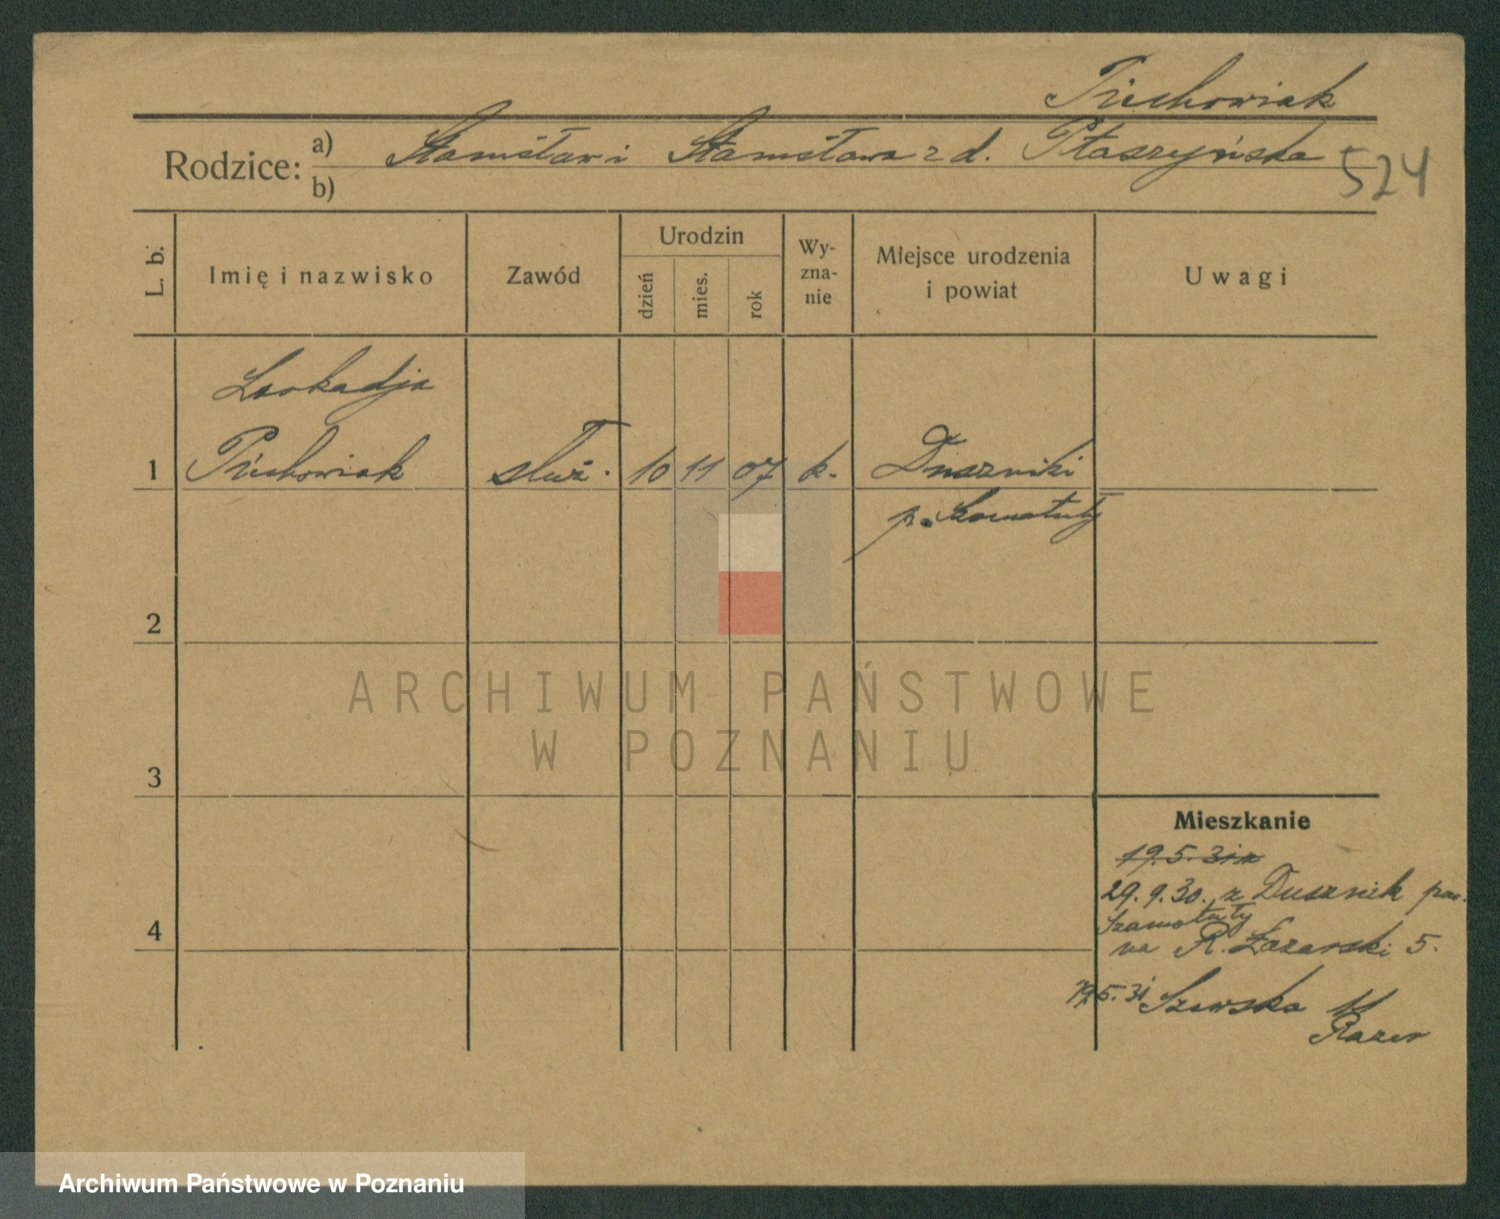 Piechowiak
Rodzice: a) Stanisław i Stanisława z d. Ptaszyńska
b)
524
L. b.
Imię i nazwisko
Zawód
Urodzin
dzień
mies.
rok
Wy-
zna-
nie
Miejsce urodzenia
i powiat
Uwagi
Leokadja
1 Piechowiak służ. 10 11 07 k. Duszniki
p. Szamotuły
2
3
4
ARCHIWUM PAŃSTWOWE
W POZNANIU
Mieszkanie
19.5.31
29.9.30. z Dusznik pow.
Szamotuły
na R. Łazarski 5.
19.5.31 Szewska 11
Archiwum Państwowe w Poznaniu